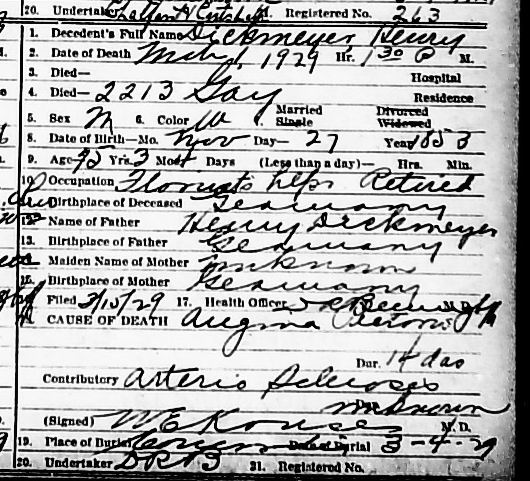 20. Undertaker 21. Registered No. 263
1. Decedent's Full Name Dickmeyer, Henry
2. Date of Death 1929 Hr. 1 30 P M.
3. Died— Hospital
4. Died— 2213 Gay Residence
5. Sex M 6. Color W 7. Married Single Divorced Widowed
8. Date of Birth—Mo. Nov Day— 27 Year 1853
9. Age Yrs. 3 Mos. Days (Less than a day)— Hrs. Min.
10. Occupation Florist's helper Retired
Birthplace of Deceased Germany
12. Name of Father Henry Dickmeyer
13. Birthplace of Father Germany
Maiden Name of Mother Unknown
15. Birthplace of Mother Germany
Filed 3/15/29 17. Health Officer M.D.
CAUSE OF DEATH Angina Pectoris
Dur. 14 das
Contributory Arterio Sclerosis
Unknown
(Signed) W E M.D.
19. Place of Burial Date of Burial 3-4-29
20. Undertaker 21. Registered No.